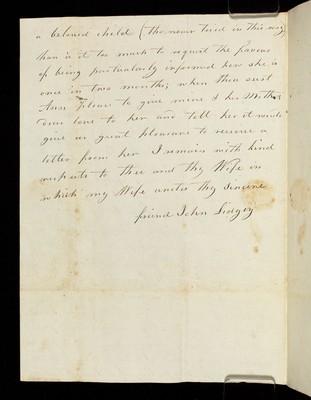 a beloved child (tho never tried in this way)
than is it too much to request the favour
of being particularly informed how she is
once in two months; when thou seest
Ann please to give mine & her Mothers
dear love to her and tell her it would
give us great pleasure to receive a
letter from her I remain with kind
respects to thee and thy Wife in
which my Wife unites thy sincere
friend John